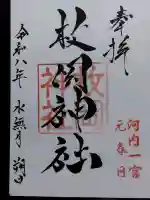 奉拝
河内一宮
元春日
枚岡神社
枚岡
神社
令和八年 水無月 朔日